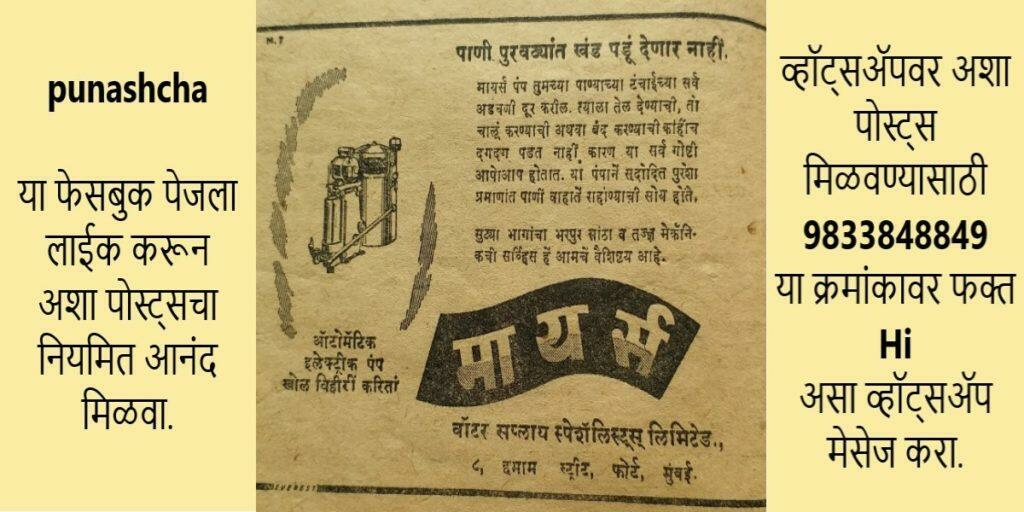 punashcha
या फेसबुक पेजला
लाईक करून
अशा पोस्ट्सचा
नियमित आनंद
मिळवा.
M. 7
पाणी पुरवठ्यांत खंड पडूं देणार नाहीं.
मायर्स पंप तुमच्या पाण्याच्या टंचाईच्या सर्व
अडचणी दूर करील. त्याला तेल देण्याची, तो
चालूं करण्याची अथवा बंद करण्याची कांहींच
दगदग पडत नाहीं. कारण या सर्व गोष्टी
आपोआप होतात. या पंपानें सदोदित पुरेशा
प्रमाणांत पाणी वाहातें राहाण्याची सोय होते.
सुट्या भागांचा भरपूर सांठा व तज्ज्ञ मेकॅनि-
कची सर्व्हिस हें आमचें वैशिष्ट्य आहे.
ऑटोमॅटिक
इलेक्ट्रीक पंप
खोल विहीरीं करितां
मायर्स
वॉटर सप्लाय स्पेशॅलिस्ट्स् लिमिटेड.,
८, हमाम स्ट्रीट, फोर्ट, मुंबई.
व्हॉट्सॲपवर अशा
पोस्ट्स
मिळवण्यासाठी
9833848849
या क्रमांकावर फक्त
Hi
असा व्हॉट्सॲप
मेसेज करा.